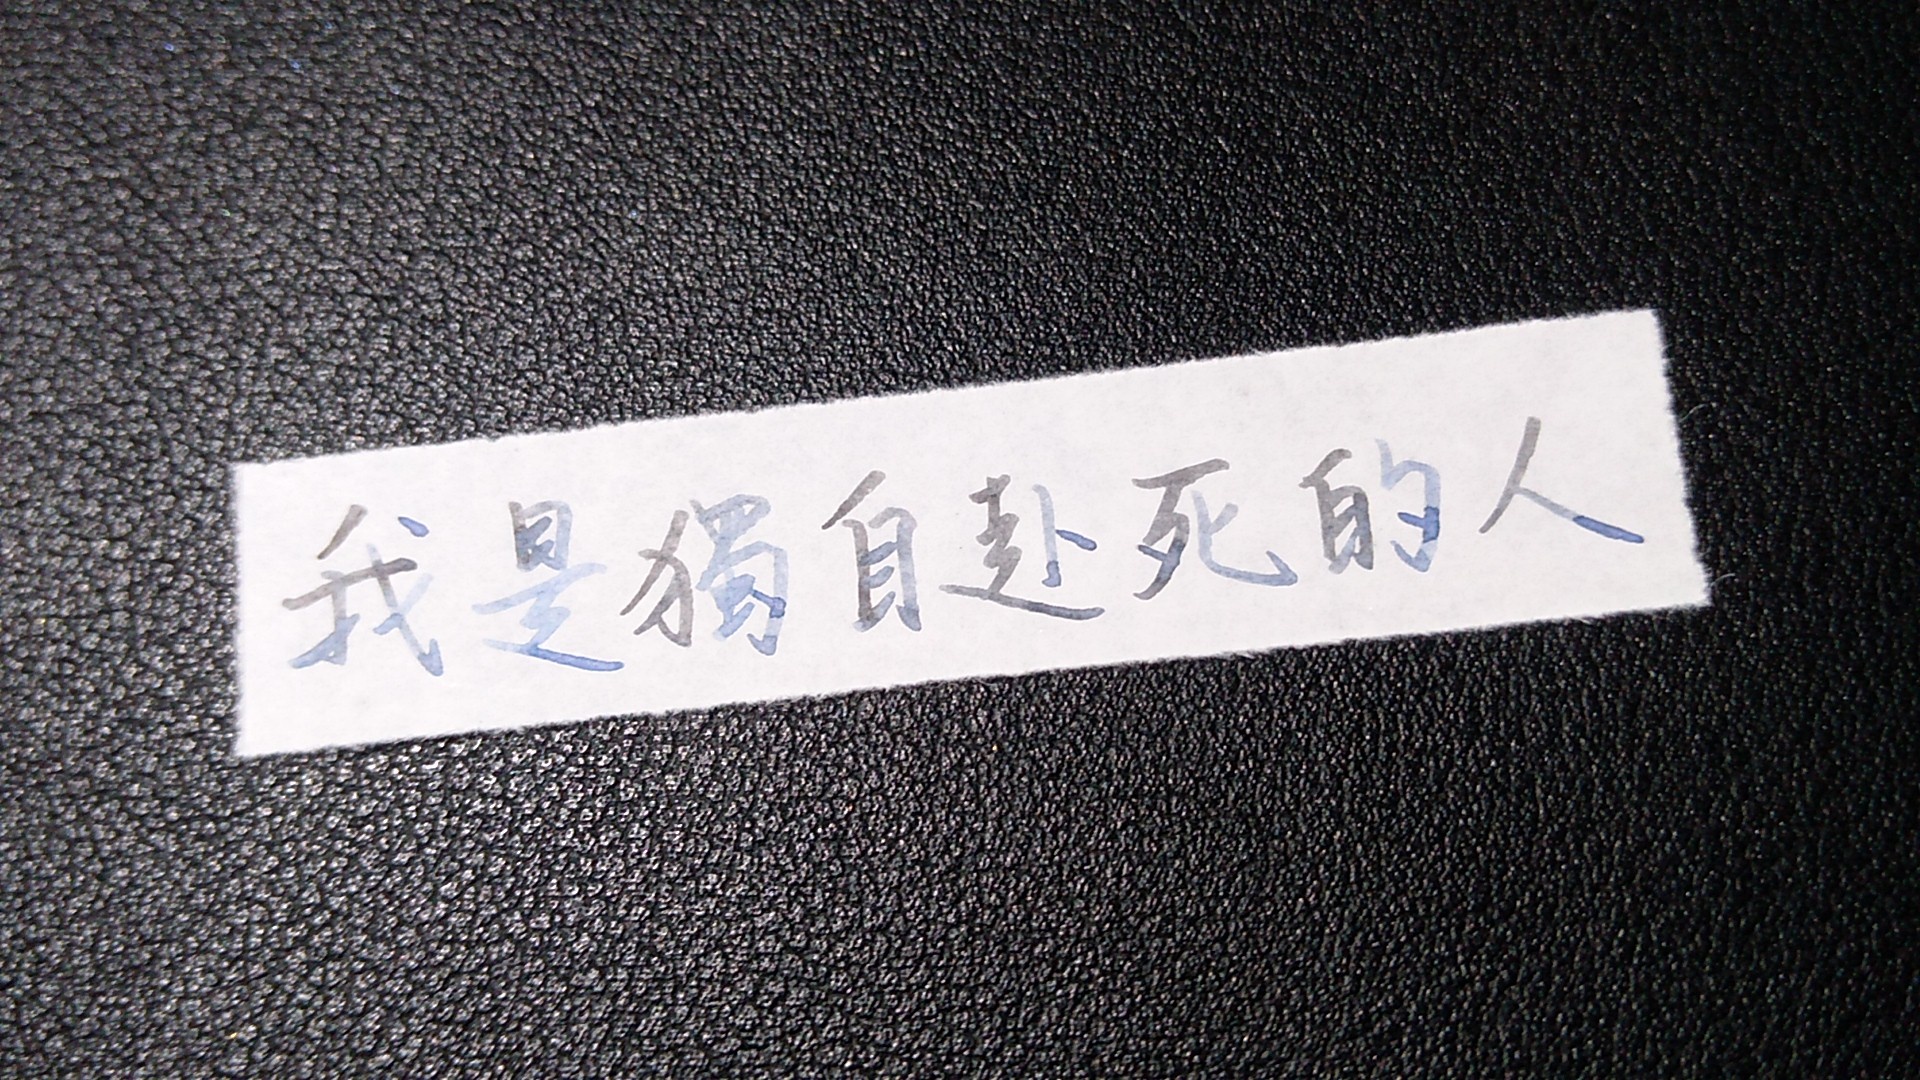 我是獨自赴死的人